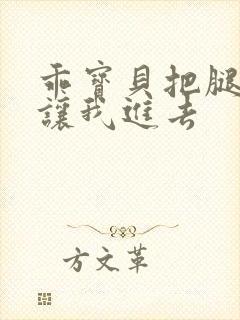 乖寶貝把腿
讓我進去
方文革